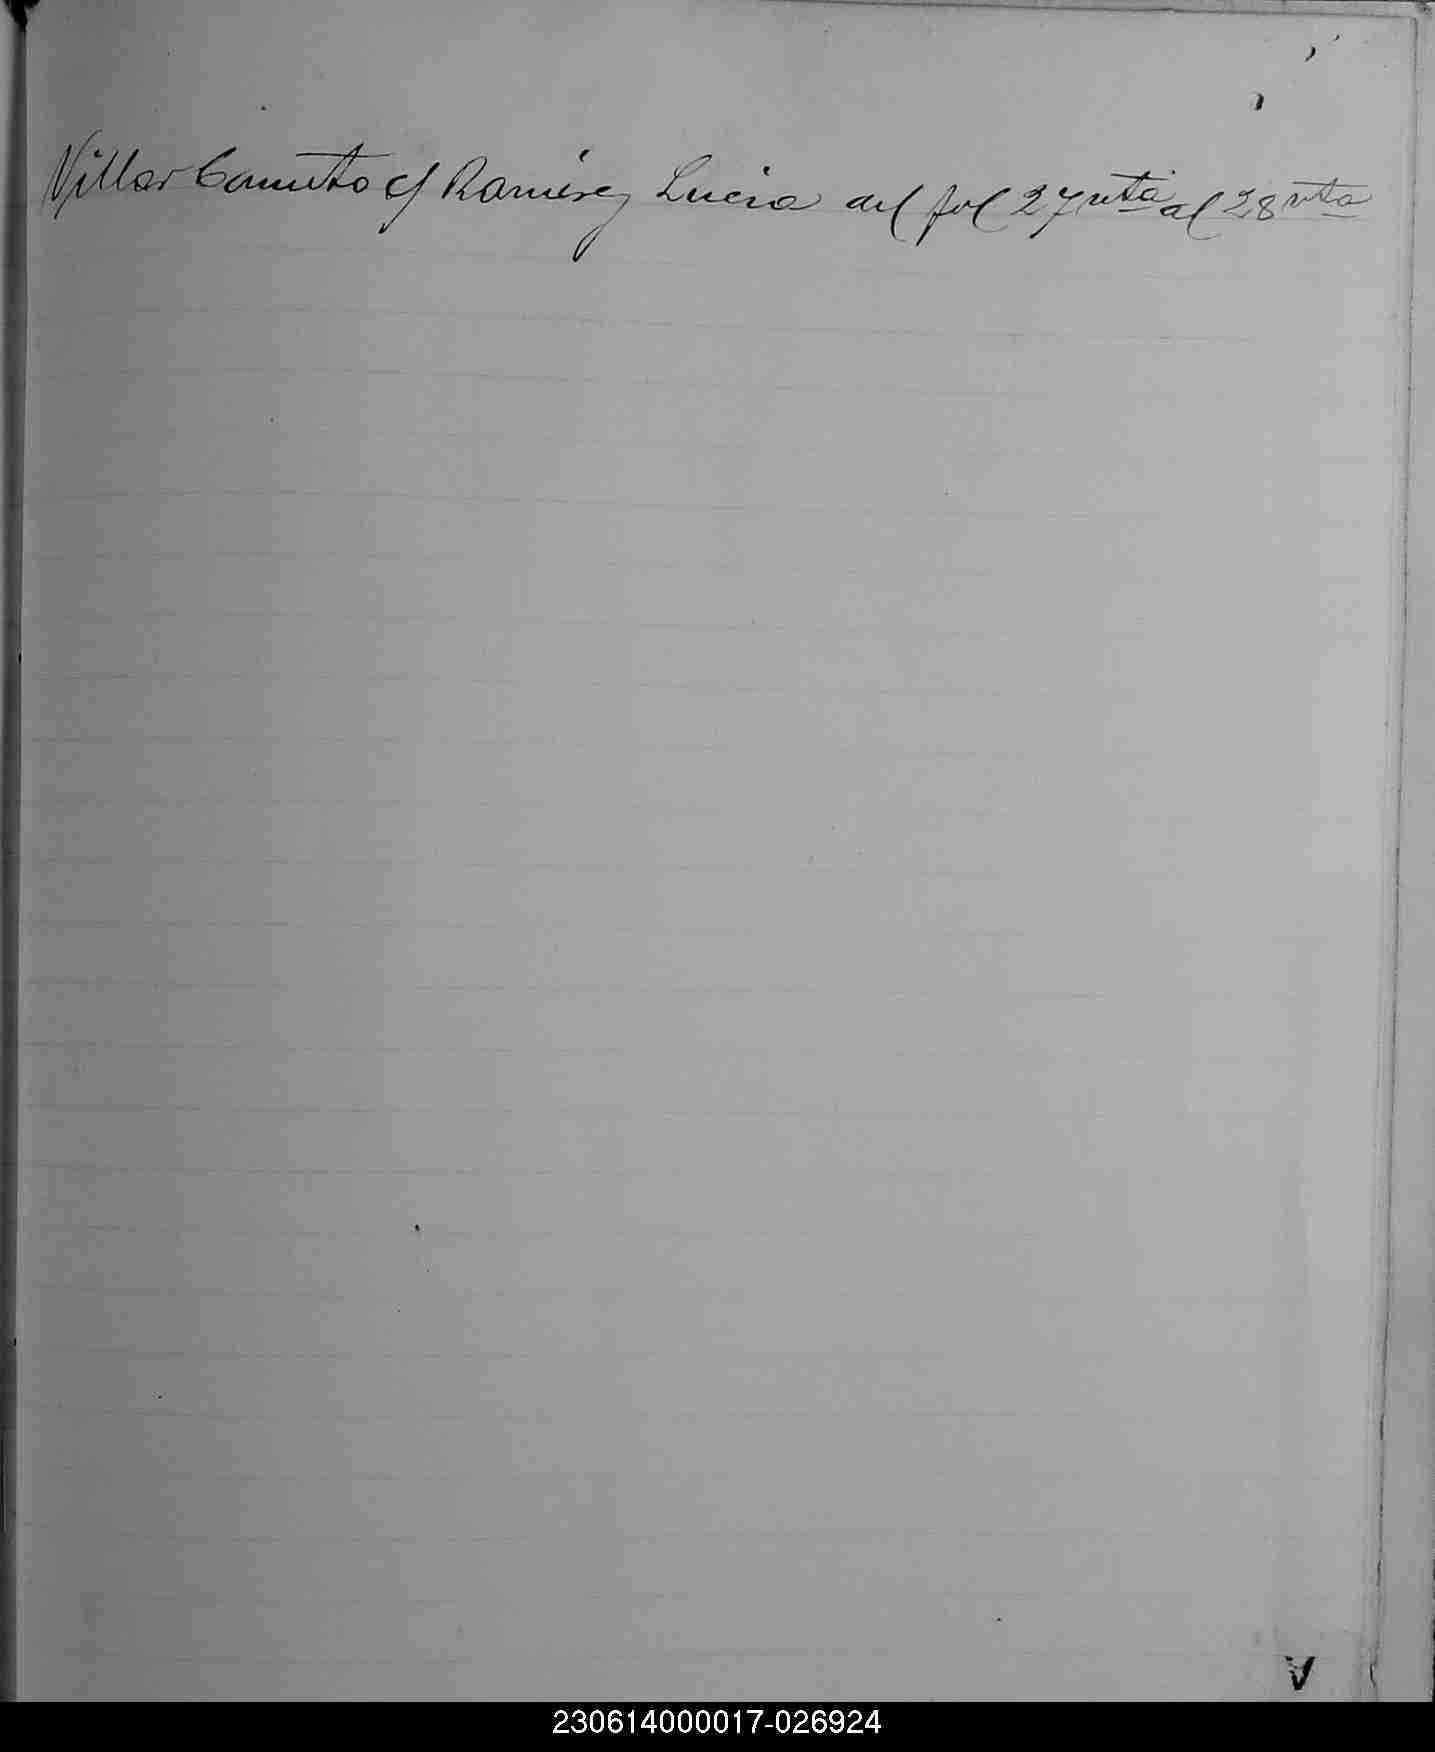 Villar Canuto c/ Ramirez Lucia del fol 27 vta al 28 vta
V
230614000017-026924